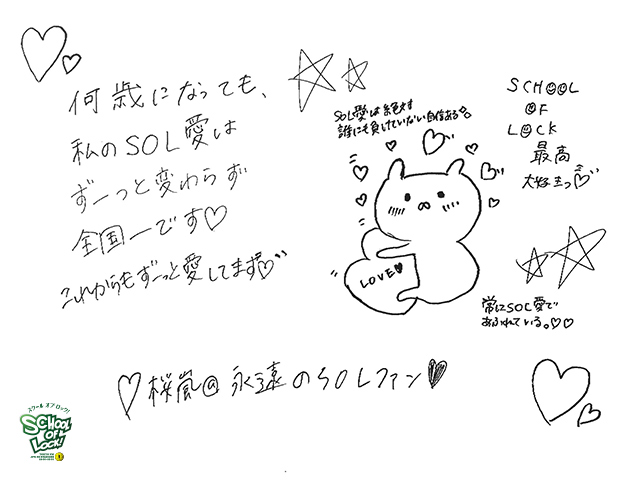 何歳になっても、
私のSOL愛は
ずーっと変わらず
全国一です♡
これからもずーっと愛してます♡
SOL愛は絶対
誰にも負けていない自信ある☆。
LOVE♥
SCHOOL
OF
LOCK
最高
大好きっ♡
常にSOL愛で
あふれている。♡♡
♡桜嵐@永遠のSOLファン♥
スクールオブロック!
SCHOOL
OF
LOCK!